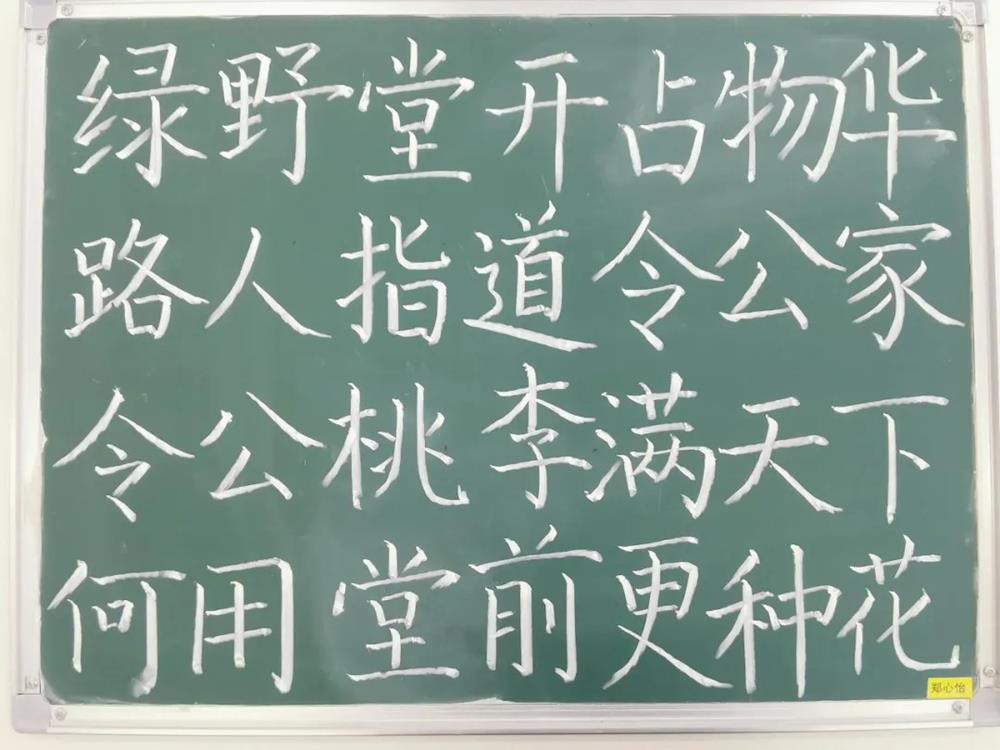 绿野堂开占物华
路人指道令公家
令公桃李满天下
何用堂前更种花
郑心怡